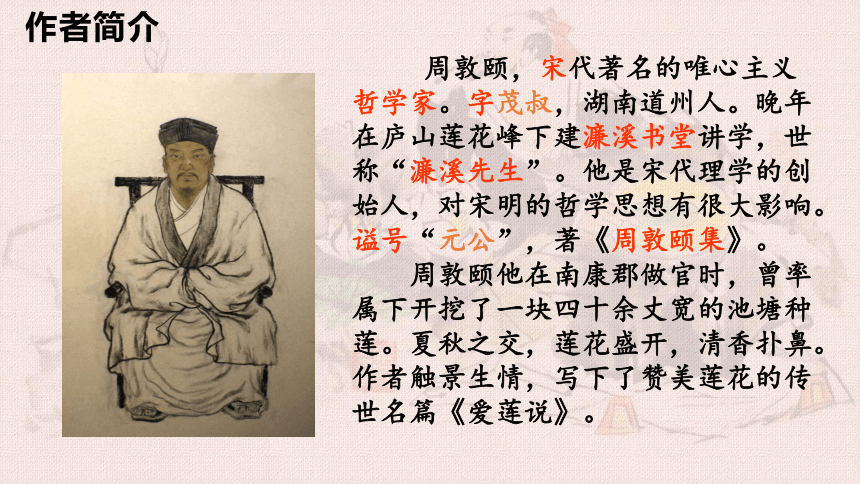 作者简介
周敦颐，宋代著名的唯心主义
哲学家。字茂叔，湖南道州人。晚年
在庐山莲花峰下建濂溪书堂讲学，世
称“濂溪先生”。他是宋代理学的创
始人，对宋明的哲学思想有很大影响。
谥号“元公”，著《周敦颐集》。
周敦颐他在南康郡做官时，曾率
属下开挖了一块四十余丈宽的池塘种
莲。夏秋之交，莲花盛开，清香扑鼻。
作者触景生情，写下了赞美莲花的传
世名篇《爱莲说》。